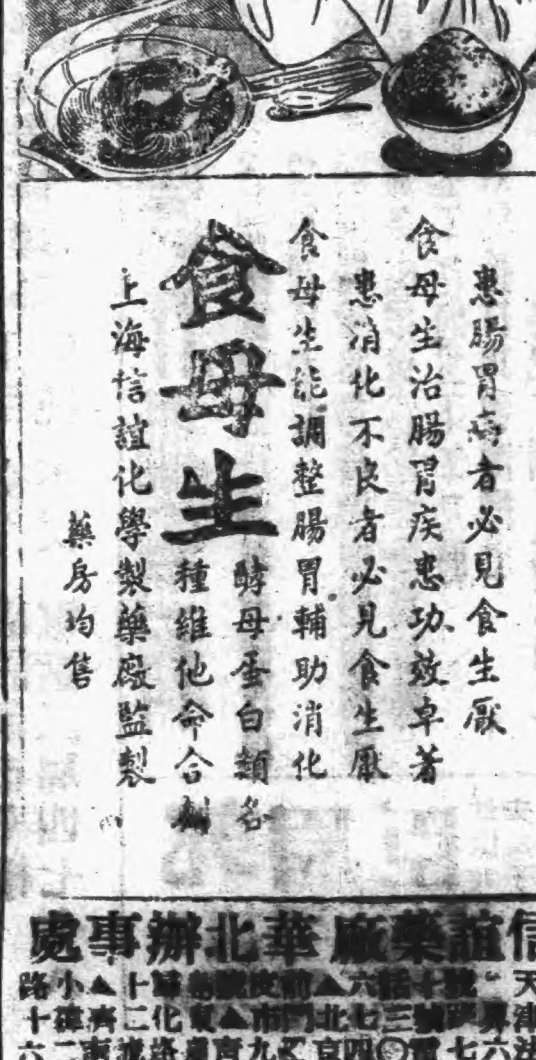 患腸胃病者必見食生厭
食母生治腸胃疾患功效卓著
患消化不良者必見食生厭
食母生能調整腸胃輔助消化
食母生
酵母蛋白類名
種維他命合劑
上海信誼化學製藥廠監製
藥房均售
信誼藥廠華北辦事處